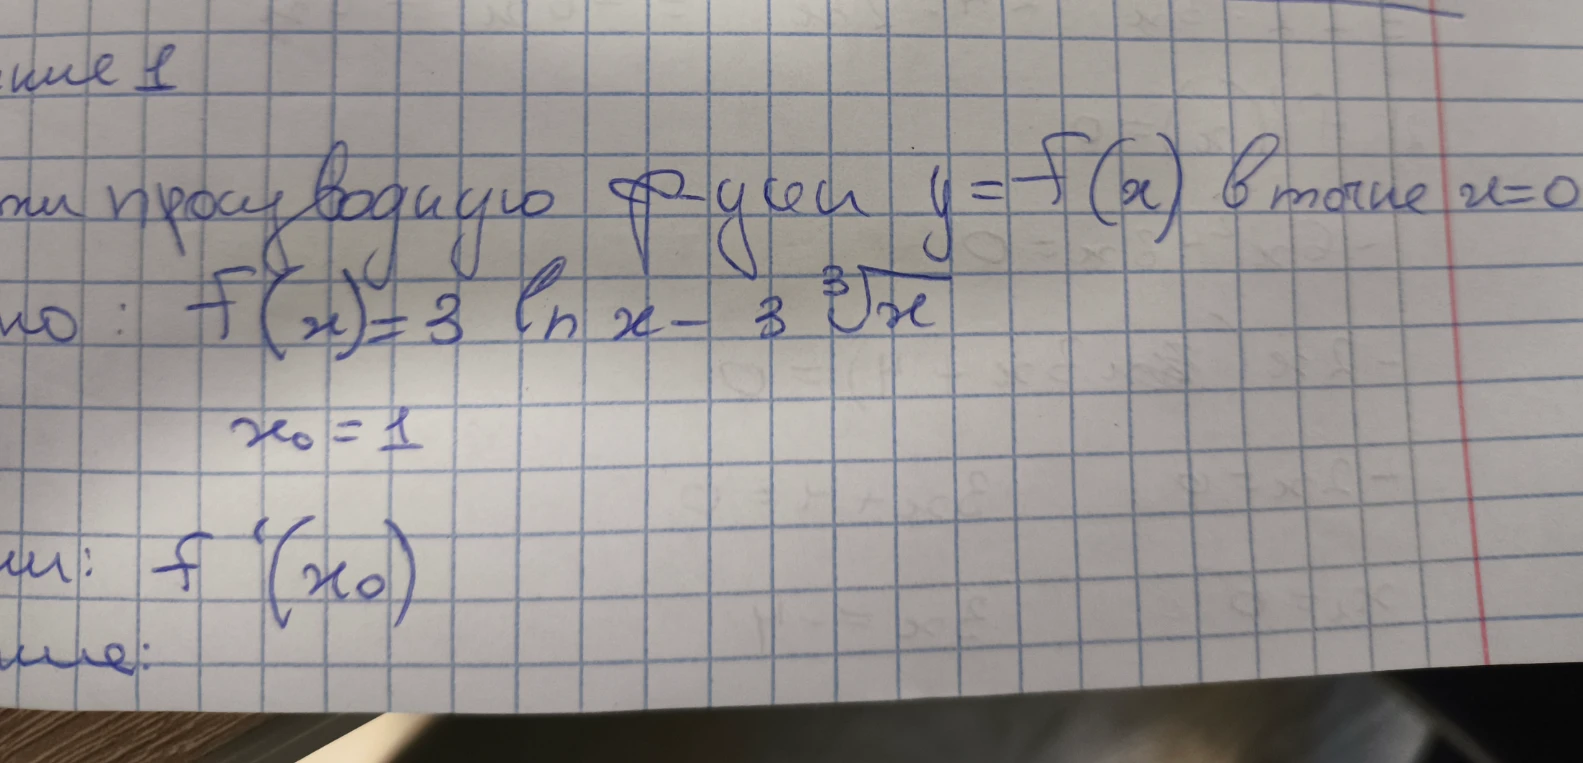 ние 1
ти производную ф-уции y = f(x) в точке x=0
но: f(x) = 3 ln x - 3 ∛x
x₀ = 1
ти: f'(x₀)
ние: